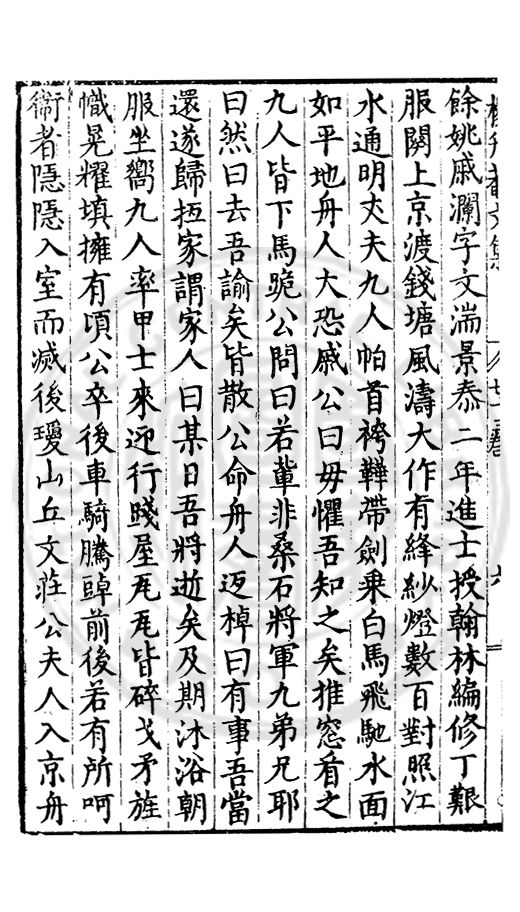 餘姚戚瀾字文湍景泰二年進士授翰林編修丁艱
服闋上京渡錢塘風濤大作有絳紗燈數百對照江
水通明丈夫九人帕首袴鞾帶劍乗白馬飛馳水面
如平地舟人大恐戚公曰毋懼吾知之矣推窓看之
九人皆下馬跪公問曰若輩非桑石將軍九弟兄耶
曰然曰去吾諭矣皆散公命舟人返棹曰有事吾當
還遂歸抵家謂家人曰某日吾將逝矣及期沐浴朝
服坐嚮九人率甲士來迎行踐屋瓦瓦皆碎戈矛旌
幟晃耀填擁有頃公卒後車騎騰踔前後若有所呵
衛者隱隱入室而滅後瓊山丘文莊公夫人入京舟